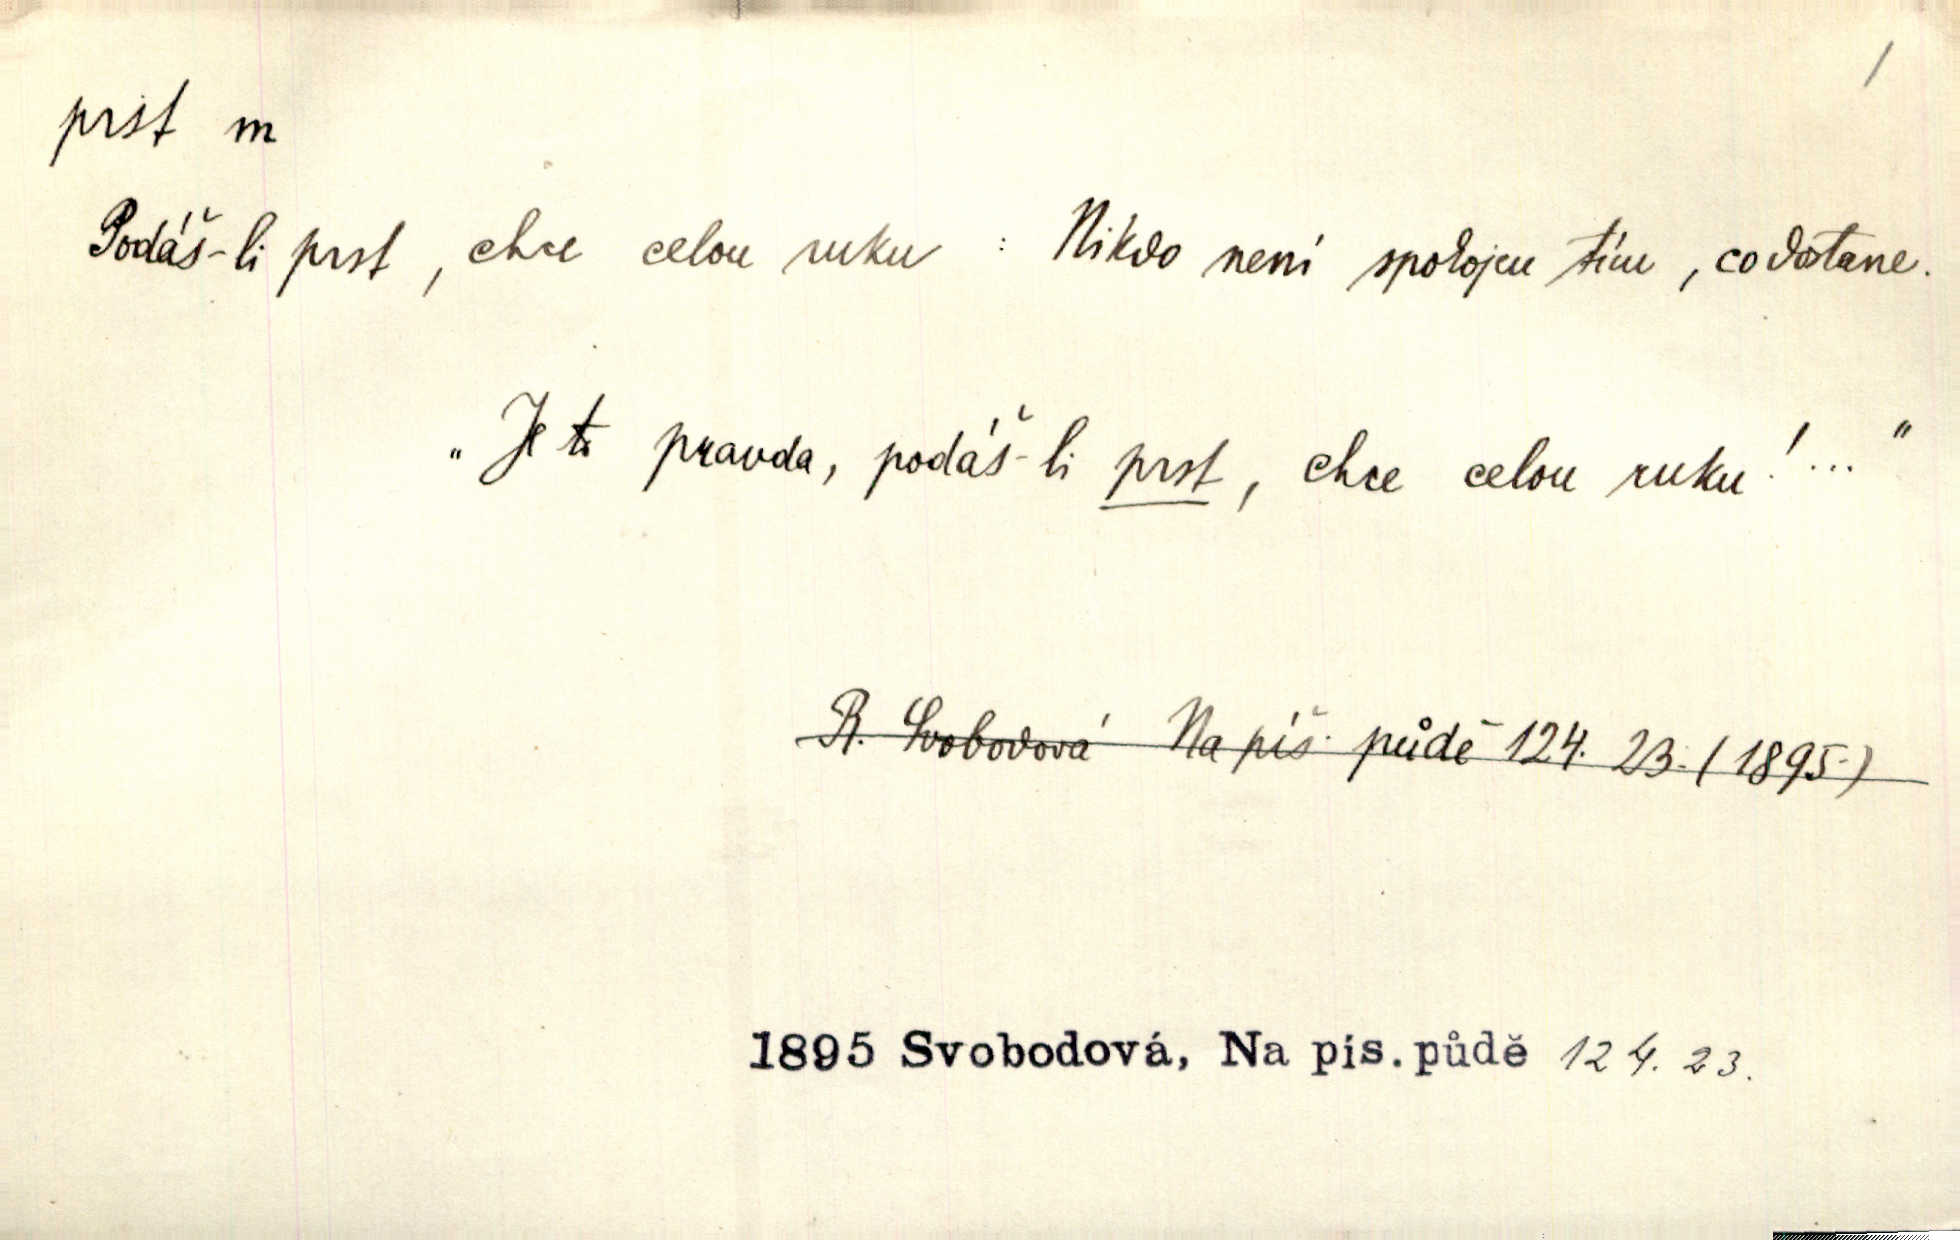 1
prst m
Podáš-li prst, chce celou ruku : Nikdo není spokojen tím, co dostane.
„Je to pravda, podáš-li prst, chce celou ruku!..."
R. Svobodová Na pís. půdě 124. 23. (1895)
1895 Svobodová, Na pís. půdě 124. 23.